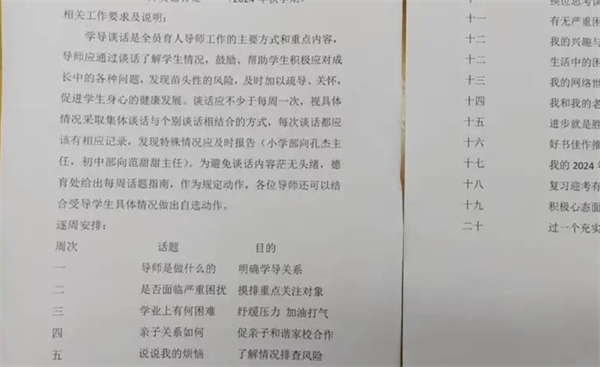 （2024年秋学期）
相关工作要求及说明：
学导谈话是全员育人导师工作的主要方式和重点内容，
导师应通过谈话了解学生情况，鼓励、帮助学生积极应对成
长中的各种问题，发现苗头性的风险，及时加以疏导、关怀，
促进学生身心的健康发展。谈话应不少于每周一次，视具体
情况采取集体谈话与个别谈话相结合的方式，每次谈话都应
该有相应记录，发现特殊情况应及时报告（小学部向孔杰主
任，初中部向范甜甜主任）。为避免谈话内容茫无头绪，德
育处给出每周话题指南，作为规定动作，各位导师还可以结
合受导学生具体情况做出自选动作。
逐周安排：
周次 话题 目的
一 导师是做什么的 明确学导关系
二 是否面临严重困扰 摸排重点关注对象
三 学业上有何困难 纾缓压力 加油打气
四 亲子关系如何 促亲子和谐家校合作
五 说说我的烦恼 了解情况排查风险
十一 有无严重困
十二 我的兴趣与
十二 生活中的困
十三 我的网络世
十四 我和我的老
十五 进步就是胜
十六 好书佳作推
十七 我的2024年
十八 复习迎考有
十九 积极心态面
二十 过一个充实